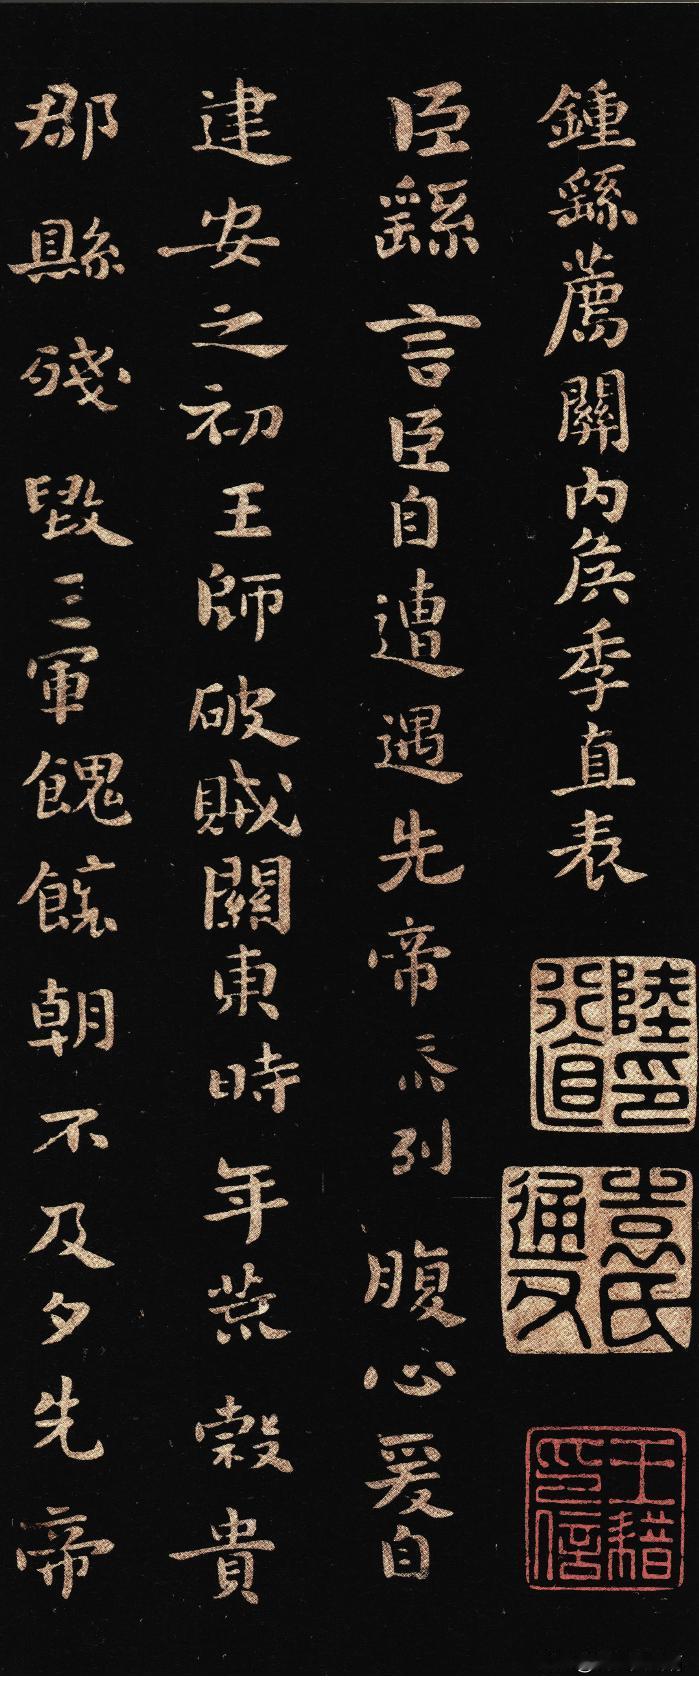 鍾繇薦關內侯季直表
臣繇言臣自遭遇先帝忝列腹心爰自
建安之初王師破賊關東時年荒穀貴
郡縣殘毀三軍餽饟朝不及夕先帝
陸印行直
袁氏通父